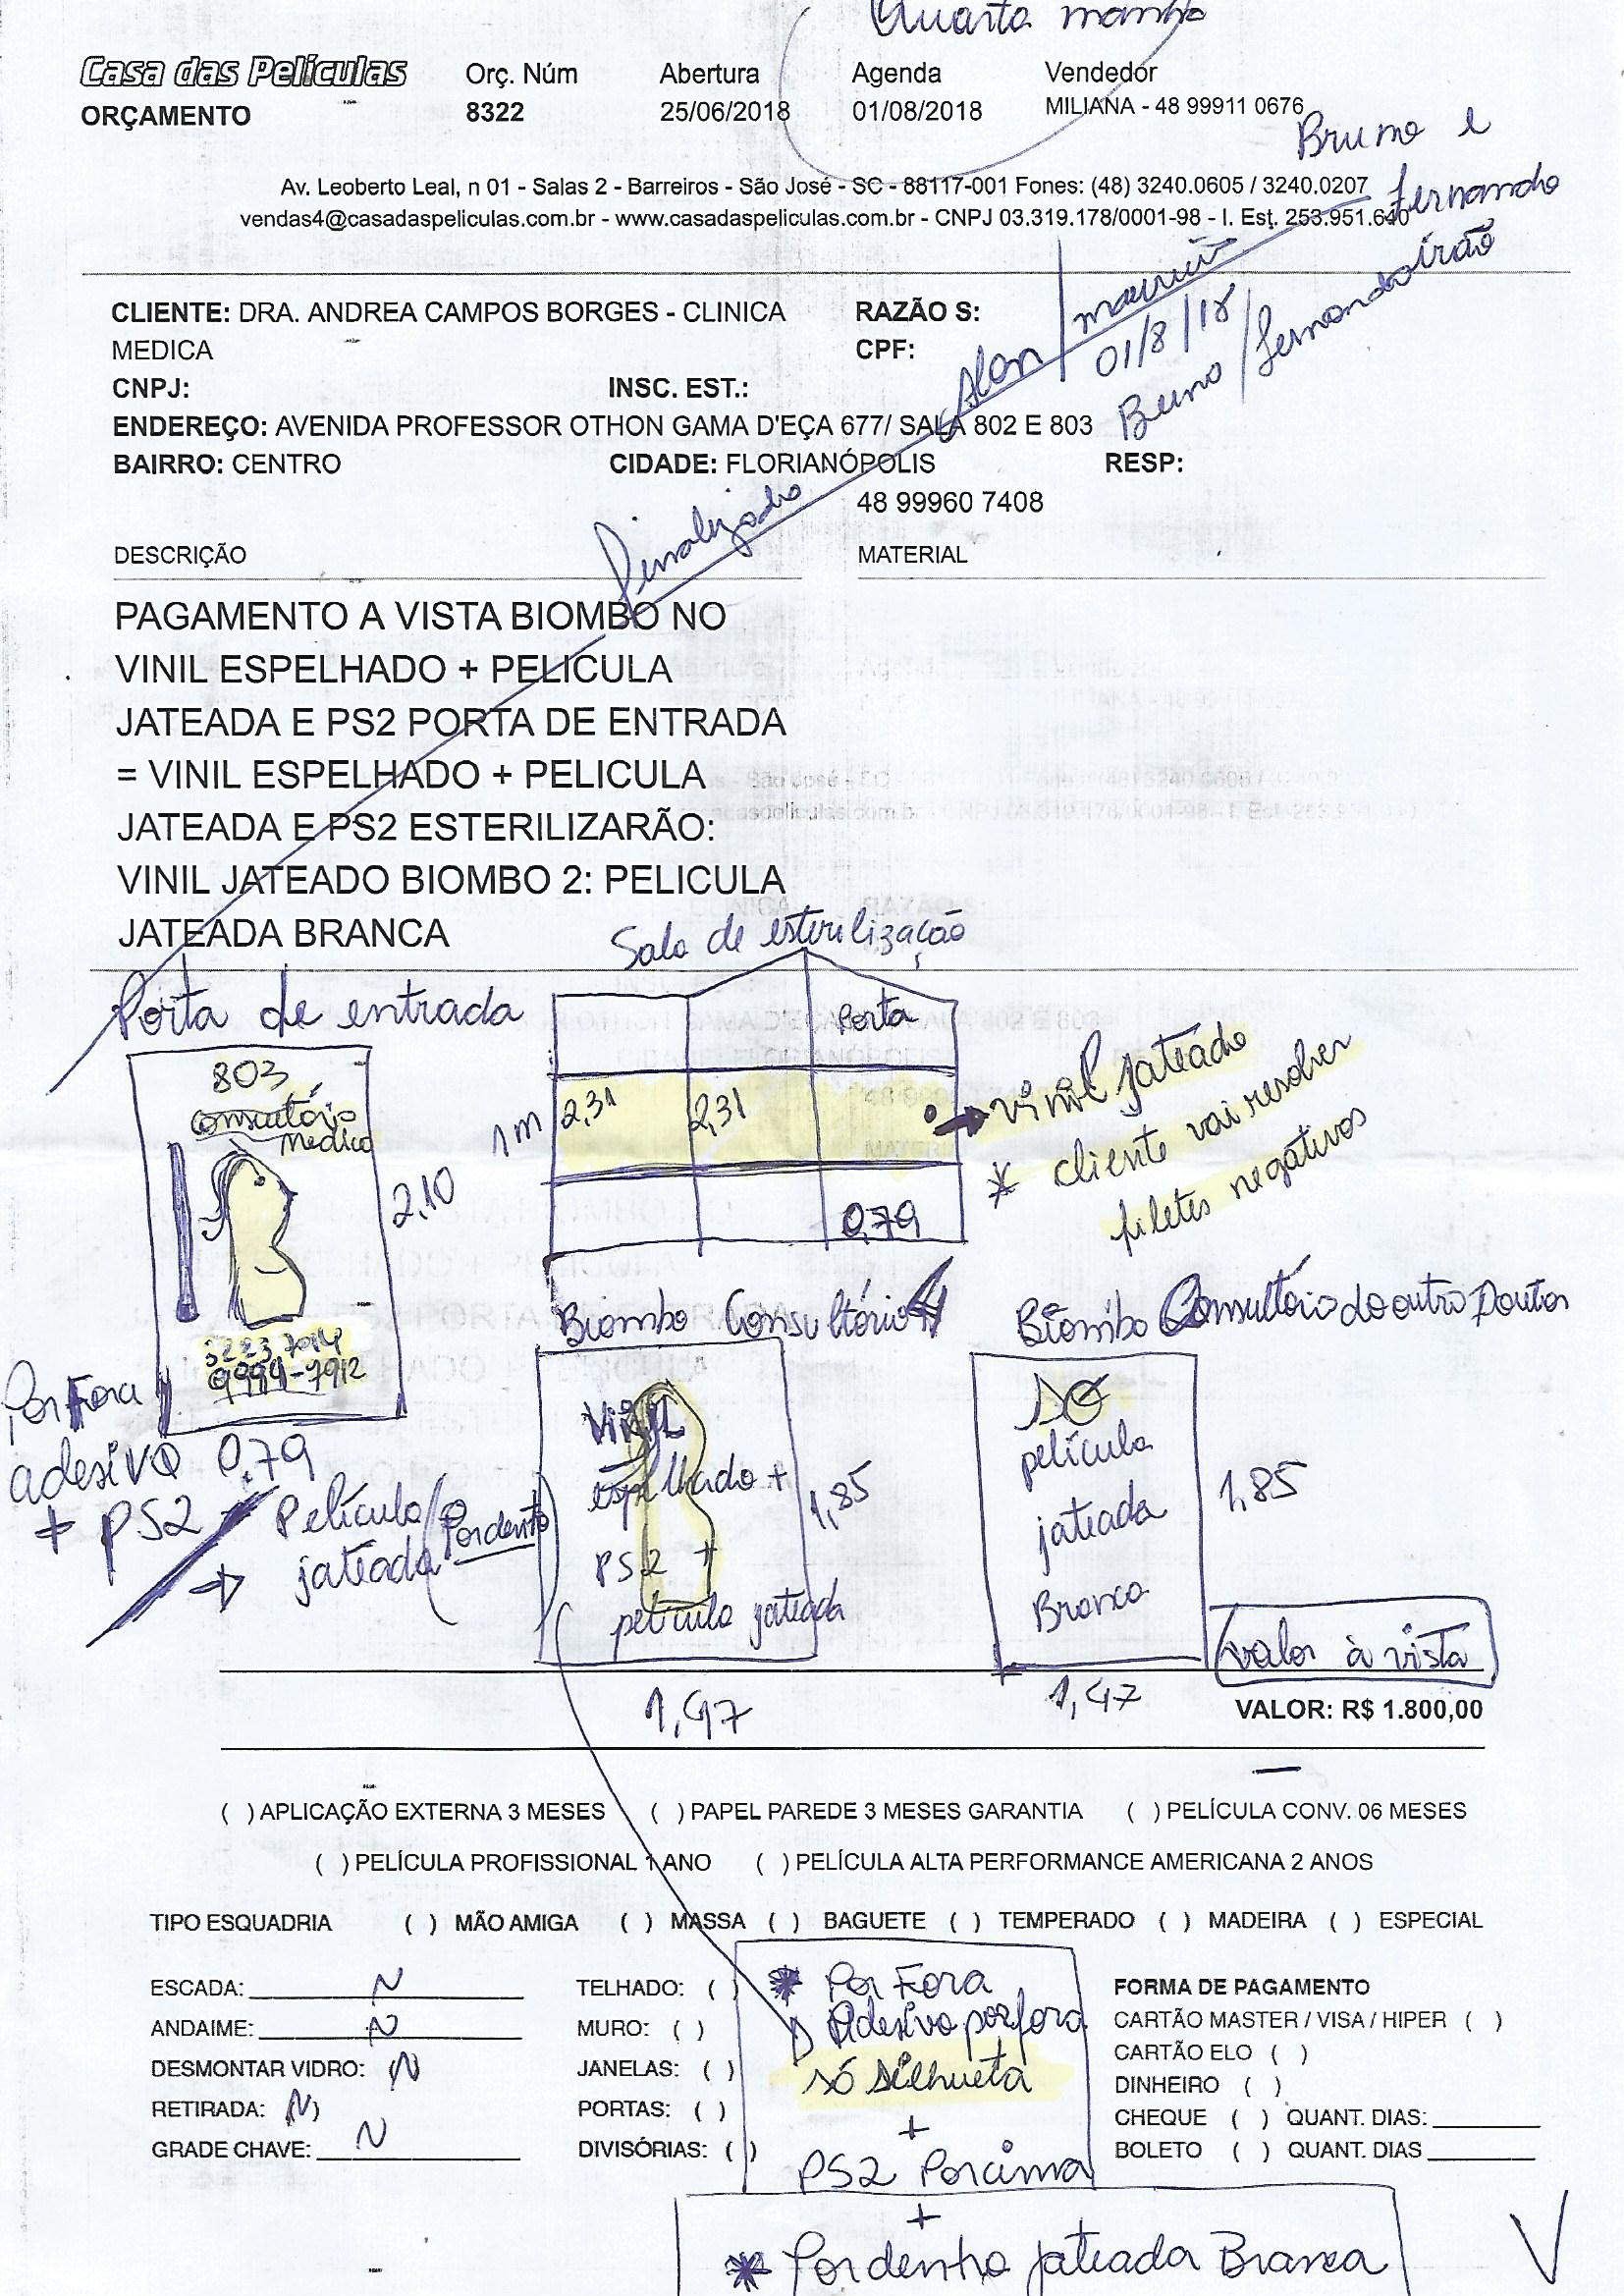 Quarta manhã
Casa das Películas
ORÇAMENTO
Orç. Núm
8322
Abertura
25/06/2018
Agenda
01/08/2018
Vendedor
MILIANA - 48 99911 0676
Bruno e
Fernando
Av. Leoberto Leal, n 01 - Salas 2 - Barreiros - São José - SC - 88117-001 Fones: (48) 3240.0605 / 3240.0207
vendas4@casadaspeliculas.com.br - www.casadaspeliculas.com.br - CNPJ 03.319.178/0001-98 - I. Est. 253.951.640
CLIENTE: DRA. ANDREA CAMPOS BORGES - CLINICA
MEDICA
RAZÃO S:
CPF:
CNPJ:
INSC. EST.:
ENDEREÇO: AVENIDA PROFESSOR OTHON GAMA D'EÇA 677/ SALA 802 E 803
BAIRRO: CENTRO
CIDADE: FLORIANÓPOLIS
RESP:
48 99960 7408
Finalizado Alan / mauricio
01/8/18
Bruno / Fernando irão
DESCRIÇÃO
MATERIAL
PAGAMENTO A VISTA BIOMBO NO
VINIL ESPELHADO + PELICULA
JATEADA E PS2 PORTA DE ENTRADA
= VINIL ESPELHADO + PELICULA
JATEADA E PS2 ESTERILIZARÃO:
VINIL JATEADO BIOMBO 2: PELICULA
JATEADA BRANCA
Sala de esterilização
Porta de entrada
803
Consultório
Medico
2,10
3223.7014
9994-7912
0,79
Porta
1m
2,31
2,31
0,79
vinil jateado
* cliente vai resolver
filetes negativos
Por Fora
adesivo
+ PS2
Película
jateada
(Por dentro)
Biombo Consultório
Vinil
espelhado +
PS2 +
película jateada
1,85
1,47
Biombo Consultório do outro Doutor
SÓ
película
jateada
Branca
1,85
1,47
valor à vista
VALOR: R$ 1.800,00
( ) APLICAÇÃO EXTERNA 3 MESES ( ) PAPEL PAREDE 3 MESES GARANTIA ( ) PELÍCULA CONV. 06 MESES
( ) PELÍCULA PROFISSIONAL 1 ANO ( ) PELÍCULA ALTA PERFORMANCE AMERICANA 2 ANOS
TIPO ESQUADRIA ( ) MÃO AMIGA ( ) MASSA ( ) BAGUETE ( ) TEMPERADO ( ) MADEIRA ( ) ESPECIAL
ESCADA: N
ANDAIME: N
DESMONTAR VIDRO: (N
RETIRADA: (N)
GRADE CHAVE: N
TELHADO: ( )
MURO: ( )
JANELAS: ( )
PORTAS: ( )
DIVISÓRIAS: ( )
* Por Fora
Adesivo por fora
só silhueta
+
PS2 Por cima
+
* Por dentro jateada Branca
FORMA DE PAGAMENTO
CARTÃO MASTER / VISA / HIPER ( )
CARTÃO ELO ( )
DINHEIRO ( )
CHEQUE ( ) QUANT. DIAS:
BOLETO ( ) QUANT. DIAS